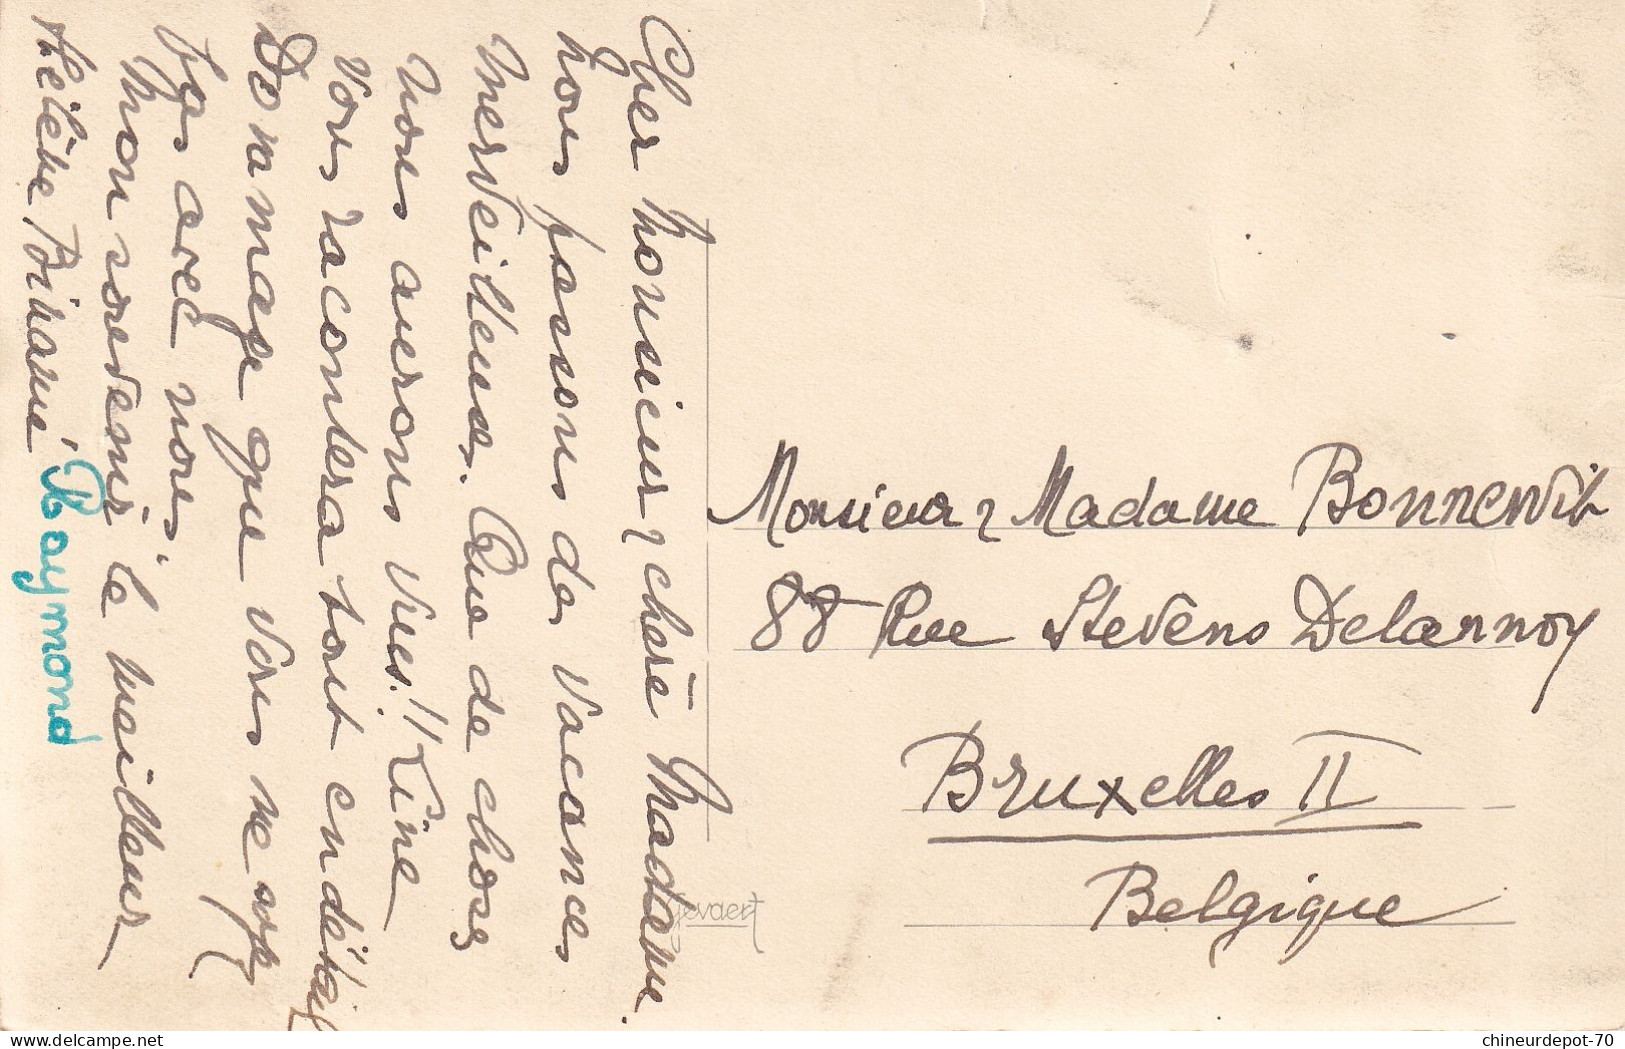 Cher Monsieur, chère Madame.
Nous passons des vacances
merveilleuses. Que de choses
nous aurons vues!! Line
vous racontera tout en détail
Dommage que vous ne soyez
pas avec nous.
Mon souvenir le meilleur
Hélène
Raymond
Monsieur, Madame
88 Rue Stevens Delannoy
Bruxelles II
Belgique
Gevaert
chineurdepot-70
delcampe.net